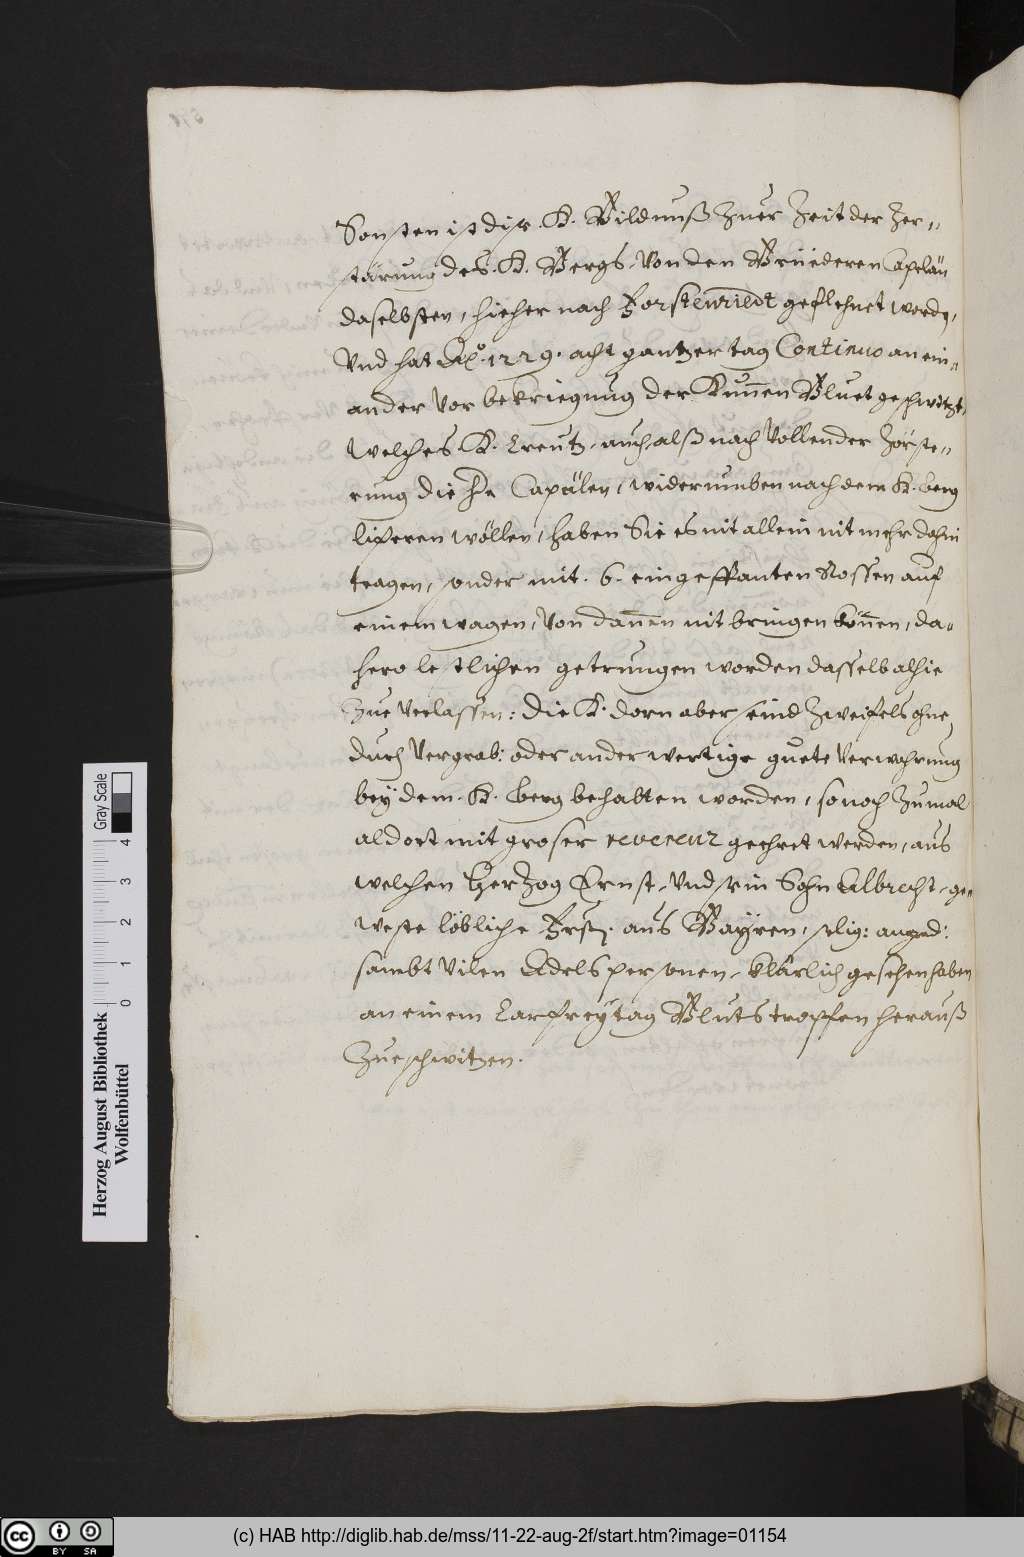 Sonsten ist dise H. Bildnuß Zuer Zeit der Zer„
stärung des H. Bergs, Von den Brüederen Capelän
daselbsten, hieher nach Forstenriedt geflehnet worden,
Vnd hat Aõ. 1229. acht gantzer tag Continuo an ein„
ander Vor bekriegung der Kunnen Bluet geschwitzt,
welches H. Creutz, auch alß nach Vollender Zörste„
rung die H Capälen, widerumben nach dem H. berg
liferen wöllen, haben Sie es nit allein nit mehr dahin
tragen, sonder mit. 6. eingespanten Rossen auf
einem wagen, Von dannen nit bringen können, da„
hero letztlichen getrungen worden dasselb alhie
Zue Verlassen: die H. dorn aber seind Zweifels ohne,
durch Vergrab: oder anderwertige guete Verwahrung
bey dem. H. berg behalten worden, so noch Zumal
aldort mit groser reverenz geehret werden, aus
welchen Herzog Ernst, Vnd sein Sohn Albrecht, ge„
weste löbliche Frst. aus Bayren, selig: anged:
sambt Vilen Adelspersonen, klärlich gesehen haben
an einem Carfreytag Blutstropfen herauß
Zueschwitzen.
Herzog August Bibliothek
Wolfenbüttel
0 1 2 3 4 Gray Scale
cc BY SA
(c) HAB http://diglib.hab.de/mss/11-22-aug-2f/start.htm?image=01154